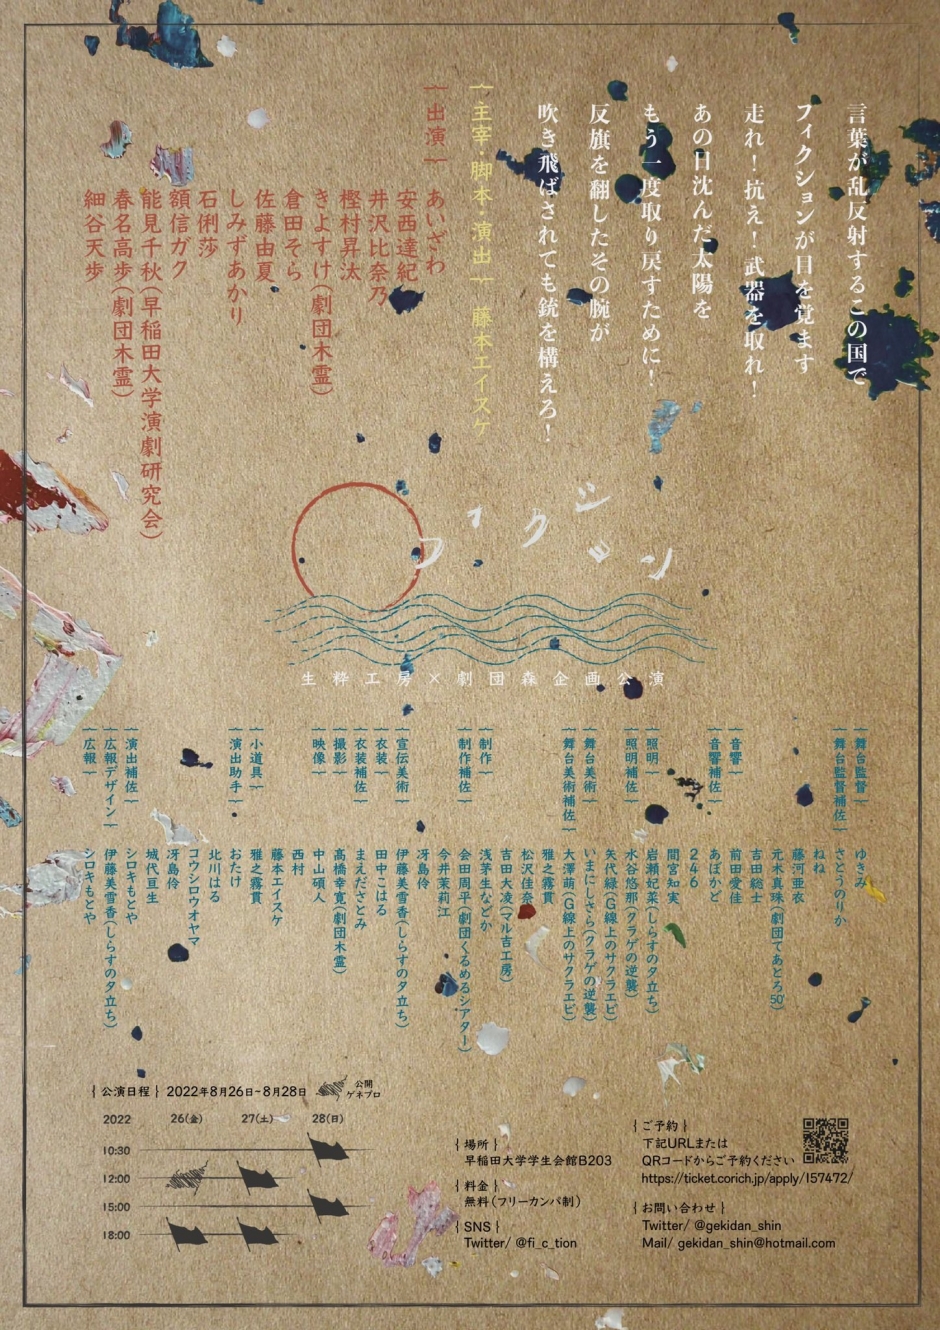 言葉が乱反射するこの国で
フィクションが目を覚ます
走れ！抗え！武器を取れ！
あの日沈んだ太陽を
もう一度取り戻すために！
反旗を翻したその腕が
吹き飛ばされても銃を構えろ！
{主宰・脚本・演出} 藤本エイスケ
{出演} あいざわ
安西達紀
井沢比奈乃
樫村昇汰
きよすけ(劇団木霊)
倉田そら
佐藤由夏
しみずあかり
石俐莎
額信ガク
能見千秋(早稲田大学演劇研究会)
春名高歩(劇団木霊)
細谷天歩
フィクション
生粋工房×劇団森企画公演
{舞台監督} ゆきみ
{舞台監督補佐} さとうのりか
ねね
藤河亜衣
元木真珠(劇団てあとろ50')
吉田総士
{音響} 前田愛佳
{音響補佐} あぽかど
246
間宮知実
{照明} 岩瀬妃菜(しらすの夕立ち)
{照明補佐} 水谷悠那(クラゲの逆襲)
矢代緑(G線上のサクラエビ)
{舞台美術} いまにしさら(クラゲの逆襲)
{舞台美術補佐} 大澤萌(G線上のサクラエビ)
雅之霧貫
松沢佳奈
吉田大凌(マル吉工房)
{制作} 浅茅生などか
{制作補佐} 会田周平(劇団くるめるシアター)
今井茉莉江
冴島伶
{宣伝美術} 伊藤美雪香(しらすの夕立ち)
{衣装} 田中こはる
{衣装補佐} まえださとみ
{撮影} 髙橋幸寛(劇団木霊)
{映像} 中山碩人
西村
藤本エイスケ
{小道具} 雅之霧貫
{演出助手} おたけ
北川はる
コウシロウオヤマ
冴島伶
城代亘生
{演出補佐} シロキもとや
{広報デザイン} 伊藤美雪香(しらすの夕立ち)
{広報} シロキもとや
{公演日程} 2022年8月26日~8月28日 公開ゲネプロ
2022 26(金) 27(土) 28(日)
10:30
12:00
15:00
18:00
{場所}
早稲田大学学生会館B203
{料金}
無料(フリーカンパ制)
{SNS}
Twitter/ @fi_c_tion
{ご予約}
下記URLまたは
QRコードからご予約ください
https://ticket.corich.jp/apply/157472/
{お問い合わせ}
Twitter/ @gekidan_shin
Mail/ gekidan_shin@hotmail.com